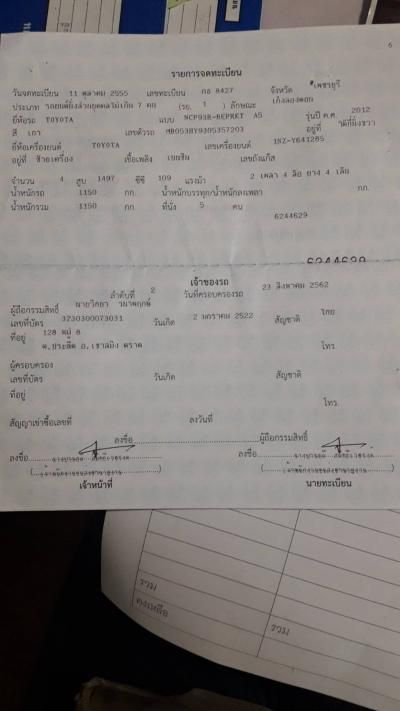 6
รายการจดทะเบียน
วันจดทะเบียน 11 ตุลาคม 2555 เลขทะเบียน กธ 8427 จังหวัด เพชรบุรี
ประเภท รถยนต์นั่งส่วนบุคคลไม่เกิน 7 คน (รย. 1 ) ลักษณะ เก๋งสองตอน
ยี่ห้อรถ TOYOTA แบบ NCP93R-BEPRKT A5 รุ่นปี ค.ศ. 2012
สี เทา เลขตัวรถ MR053HY9305357203 อยู่ที่
ยี่ห้อเครื่องยนต์ TOYOTA เลขเครื่องยนต์ 1NZ-Y641285
อยู่ที่ ซ้ายเครื่อง เชื้อเพลิง เบนซิน เลขถังแก๊ส
จำนวน 4 สูบ 1497 ซีซี 109 แรงม้า 2 เพลา 4 ล้อ ยาง 4 เส้น
น้ำหนักรถ 1150 กก. น้ำหนักบรรทุก/น้ำหนักลงเพลา กก.
น้ำหนักรวม 1150 กก. ที่นั่ง 5 คน
6244629
6244629
เจ้าของรถ
ลำดับที่ 2 วันที่ครอบครองรถ 23 สิงหาคม 2562
ผู้ถือกรรมสิทธิ์ นายวิทยา วนาพฤกษ์
เลขที่บัตร 3230300073031 วันเกิด 2 มกราคม 2522 สัญชาติ ไทย
ที่อยู่ 128 หมู่ 8
ต.ประณีต อ.เขาสมิง ตราด โทร.
ผู้ครอบครอง
เลขที่บัตร วันเกิด สัญชาติ
ที่อยู่
โทร.
สัญญาเช่าซื้อเลขที่ ลงวันที่
ลงชื่อ ผู้ถือกรรมสิทธิ์
ลงชื่อ ลงชื่อ
เจ้าหน้าที่ นายทะเบียน
รวม
คงเหลือ
รวม